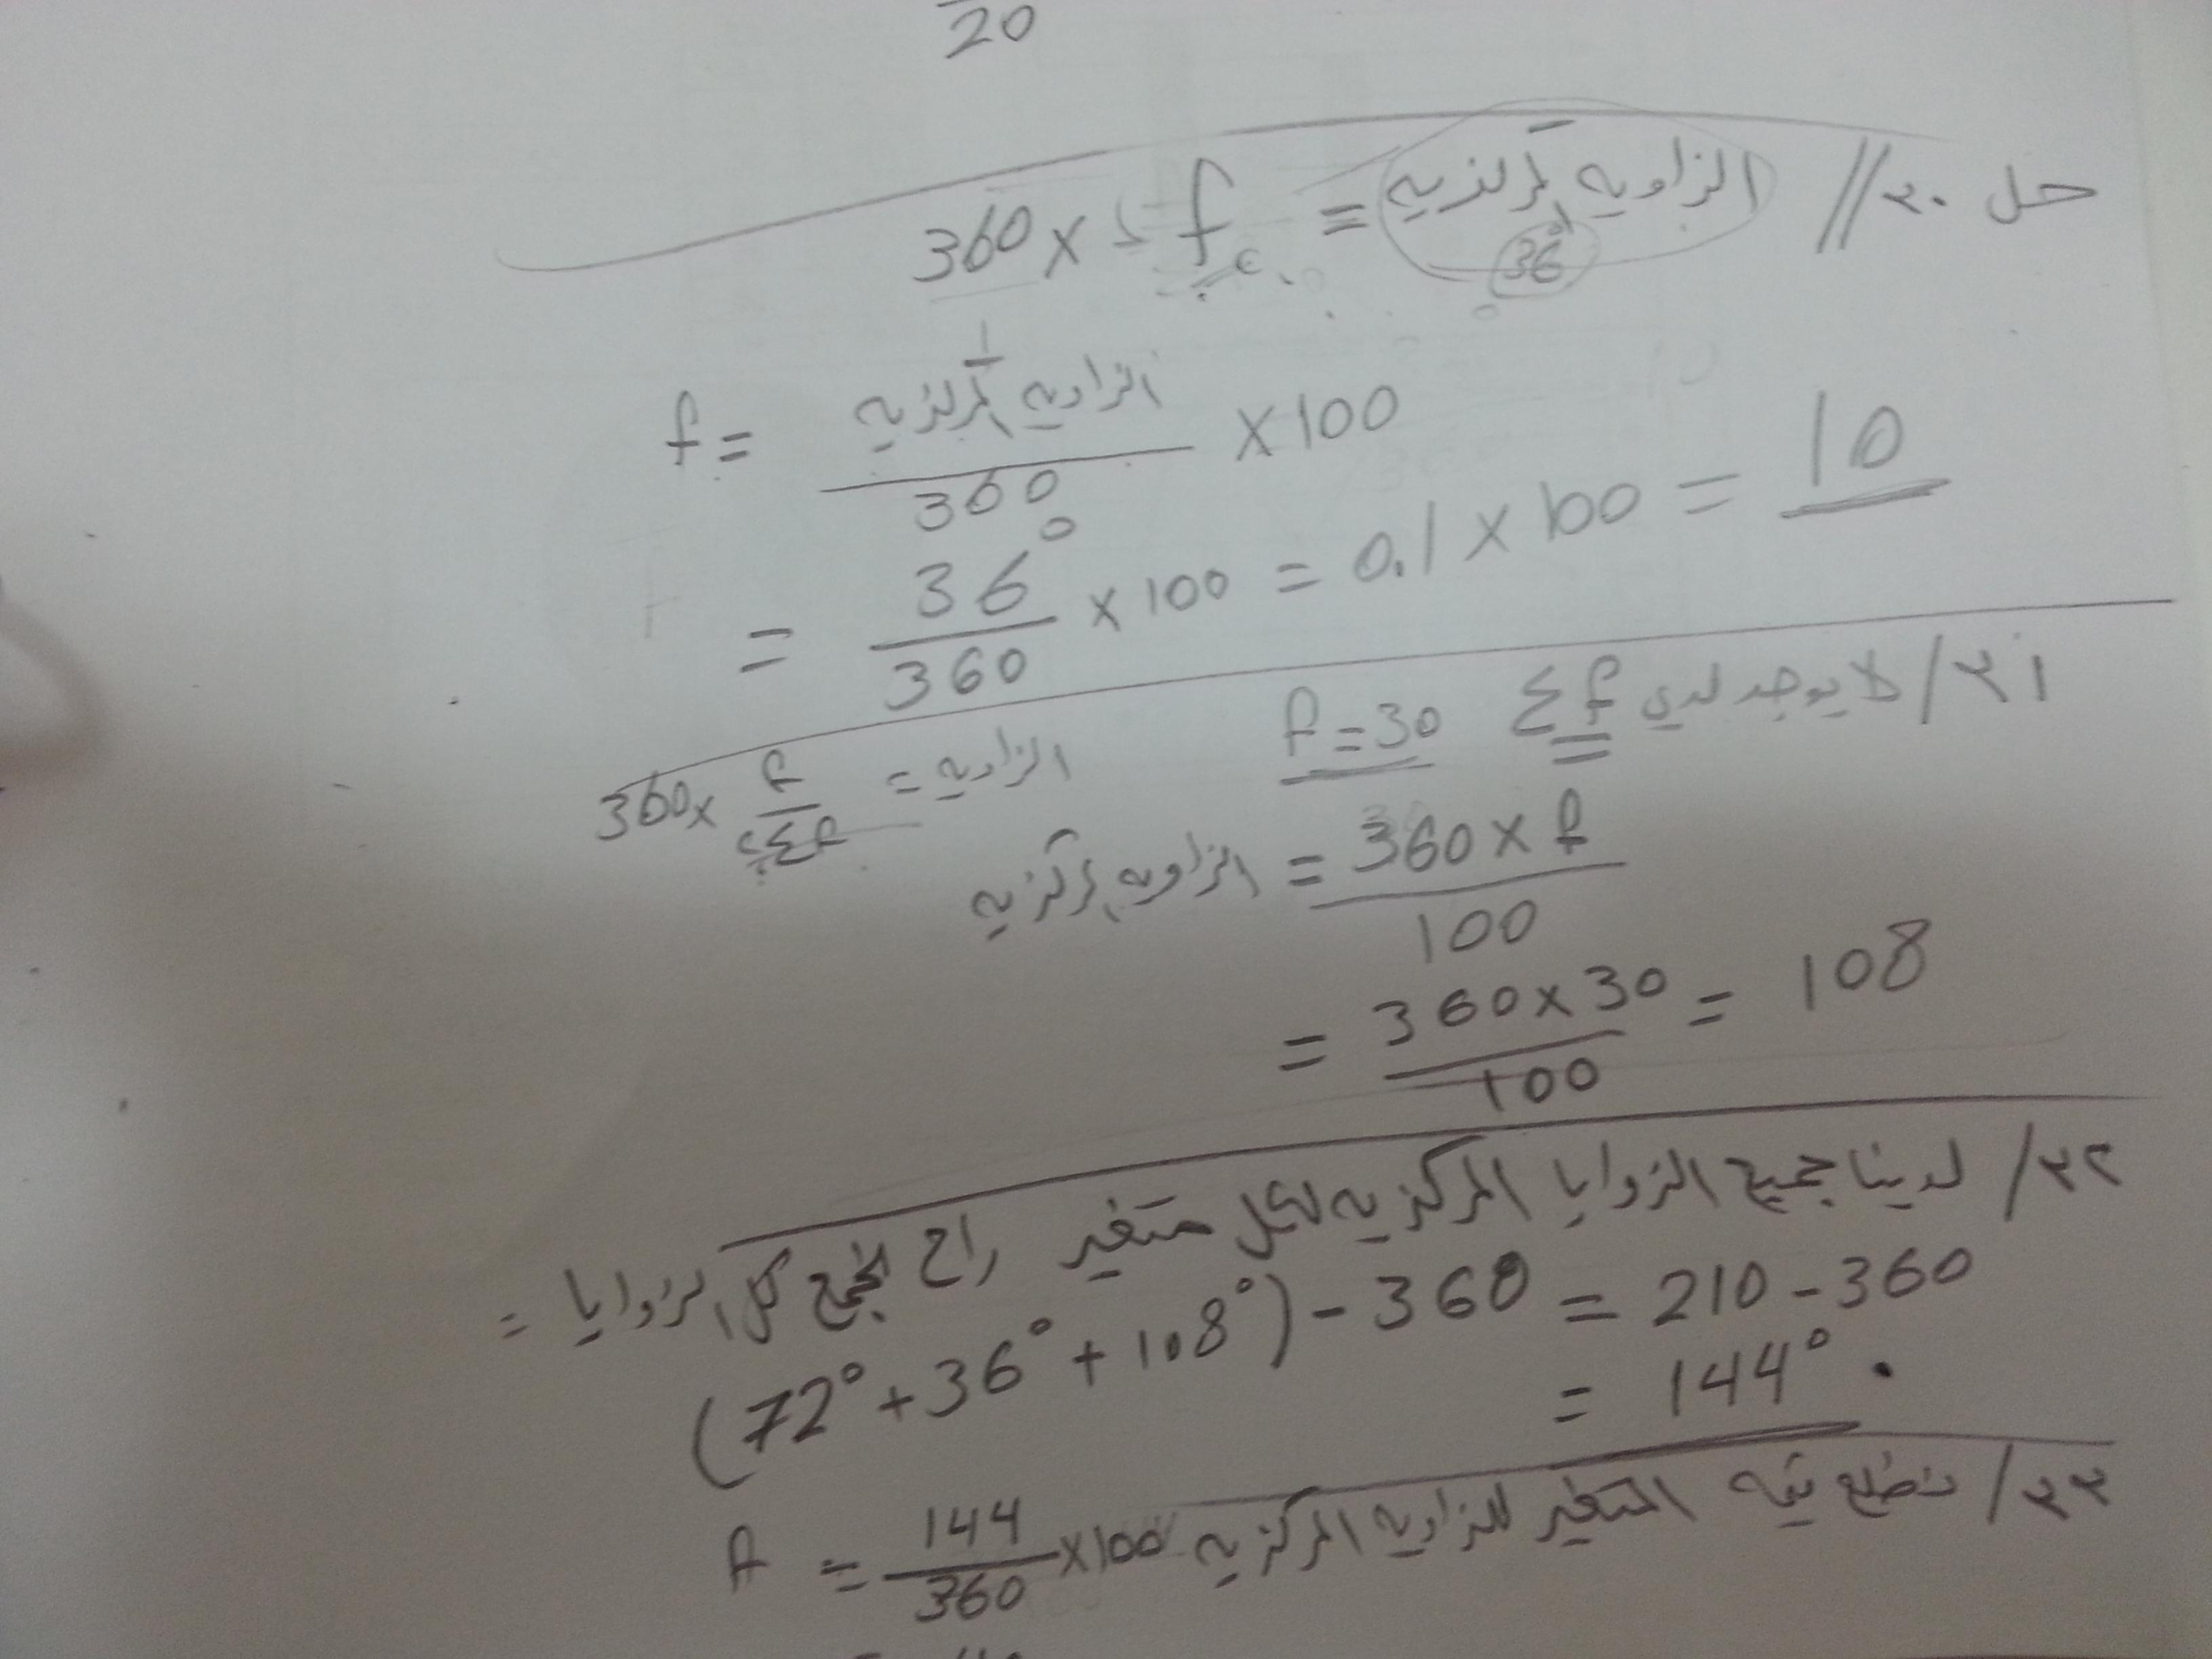 20
حل ٣٠ // الزاوية المركزية = f × 360
36°
f = الزاوية المركزية / 360 × 100
= 36° / 360 × 100 = 0.1 × 100 = 10
٣١ / لا يوجد لدي Σf f = 30
الزاوية = f / Σf × 360
الزاوية المركزية = 360 × f / 100
= 360 × 30 / 100 = 108
٣٢ / لدينا جميع الزوايا المركزية لكل متغير راح نجمع كل الزوايا =
(72° + 36° + 108°) - 360 = 210 - 360
= 144°
٣٣ / المتغير للزاوية المركزية
f = 144 / 360 × 100